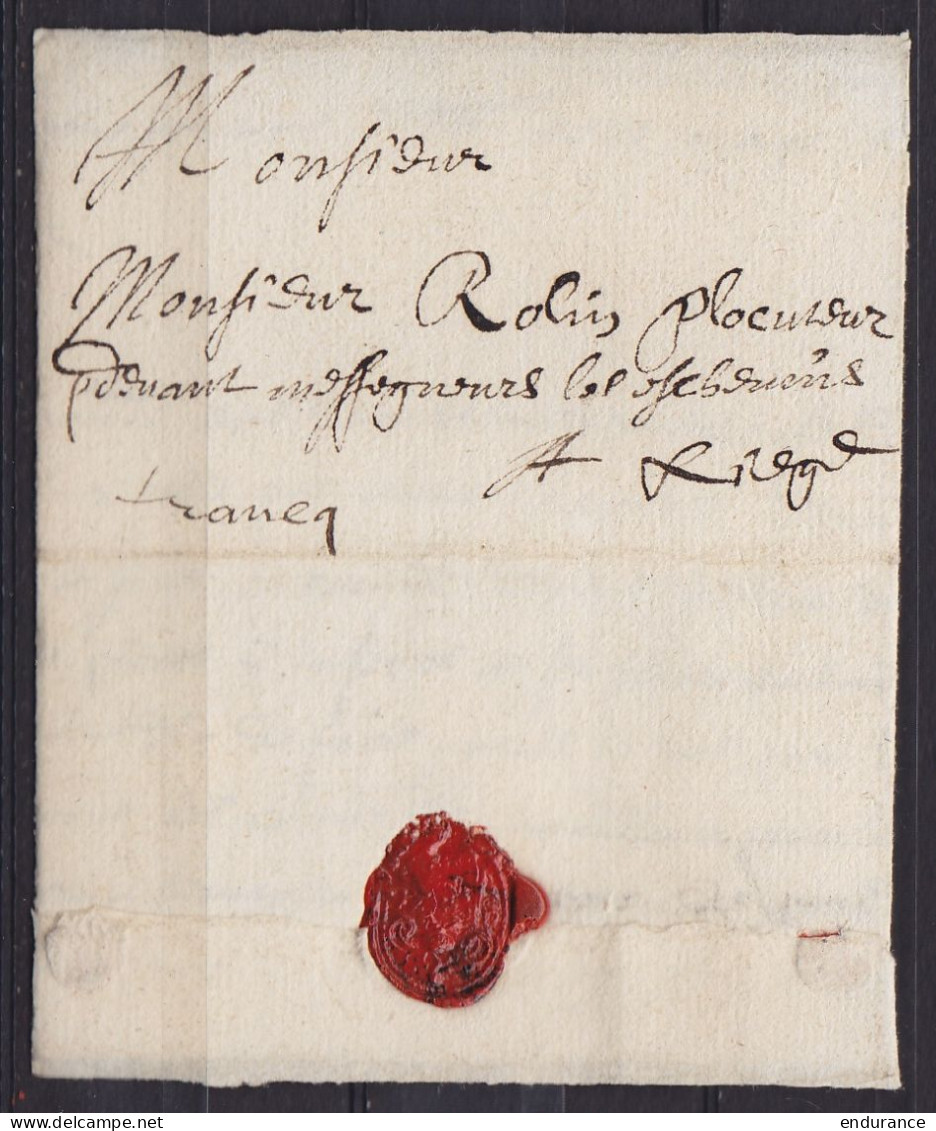 Monsieur
Monsieur Rolin plocuteur
pdevant messegneurs les eschevins
A Liege
francq
endurance